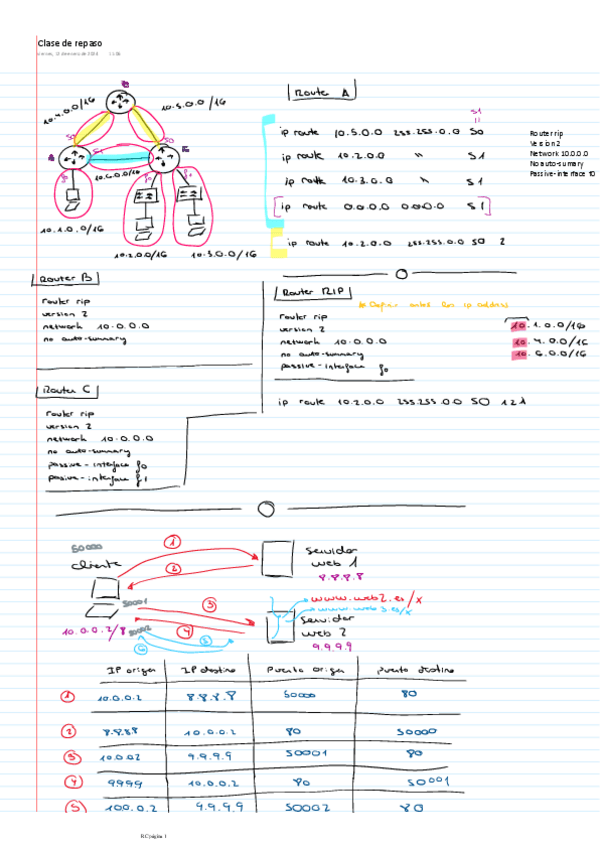 Clase de repaso
10.4.0.0/16
10.5.0.0/16
B
S0
S0
A
S1
C
10.6.0.0/16
f0
f1
10.1.0.0/16
10.2.0.0/16
10.3.0.0/16
Route A
S1
ip route 10.5.0.0 255.255.0.0 S0
ip route 10.2.0.0 " S1
ip route 10.3.0.0 " S1
ip route 0.0.0.0 0.0.0.0 S1
ip route 10.2.0.0 255.255.0.0 S0 2
Router rip
Version 2
Network 10.0.0.0
No auto-sumary
Passive-interface f0
Router B
router rip
version 2
network 10.0.0.0
no auto-summary
Router RIP
* Definir antes los ip address
router rip
version 2
network 10.0.0.0
no auto-summary
passive-interface f0
10.1.0.0/16
10.4.0.0/16
10.6.0.0/16
ip route 10.2.0.0 255.255.0.0 S0 121
Router C
router rip
version 2
network 10.0.0.0
no auto-summary
passive-interface f0
passive-interface f1
50000
cliente
1
2
servidor
web 1
8.8.8.8
50001
3
4
www.web2.es/x
www.web3.es/x
servidor
web 2
9.9.9.9
10.0.0.2/8
50002
6
5
IP origen IP destino Puerto origen Puerto destino
1 10.0.0.2 8.8.8.8 50000 80
2 8.8.8.8 10.0.0.2 80 50000
3 10.0.0.2 9.9.9.9 50001 80
4 9.9.9.9 10.0.0.2 80 50001
5 10.0.0.2 9.9.9.9 50002 80
RC página 1